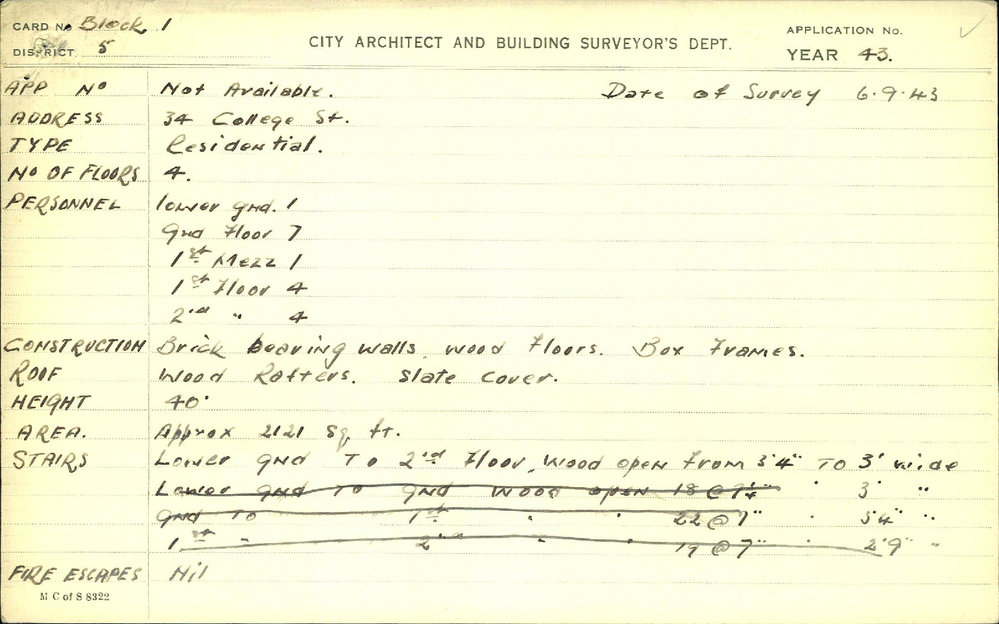 CARD No Block 1
DISTRICT 5
CITY ARCHITECT AND BUILDING SURVEYOR'S DEPT.
APPLICATION No.
YEAR 43.
APP No Not Available. Date of Survey 6.9.43
ADDRESS 34 College St.
TYPE Residential.
No OF FLOORS 4.
PERSONNEL lower gnd. 1
Gnd Floor 7
1st Mezz 1
1st Floor 4
2nd " 4
CONSTRUCTION Brick bearing walls, wood Floors. Box Frames.
ROOF Wood Rafters. Slate Cover.
HEIGHT 40'
AREA. Approx 2121 Sq ft.
STAIRS Lower gnd To 2nd Floor, Wood open from 3'4" To 3' wide
Lower gnd To gnd wood open 18 @ 7¼" " 3' "
Gnd To 1st " " 22 @ 7" " 3'4" "
1st " 2nd " " 19 @ 7" " 2'9" "
FIRE ESCAPES Nil
M C of S 8322